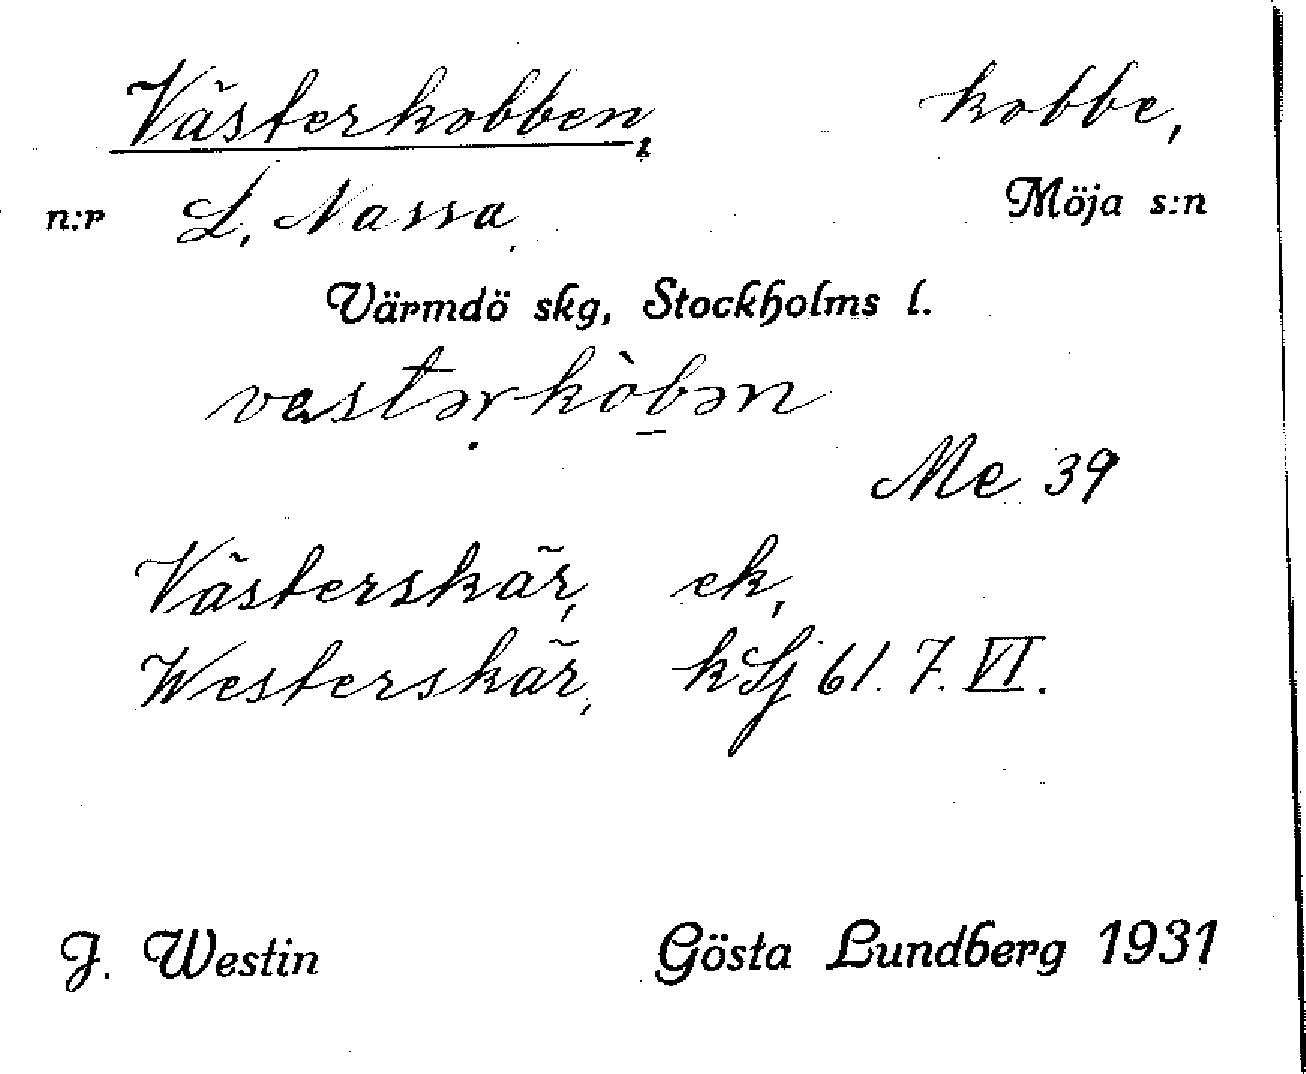 Västerkobben, kobbe,
n:r L. Nassa Möja s:n
Värmdö skg, Stockholms l.
vastərkòbən
Me 39
Västerskär, ek,
Westerskär, kSj 61. 7. VI.
J. Westin Gösta Lundberg 1931